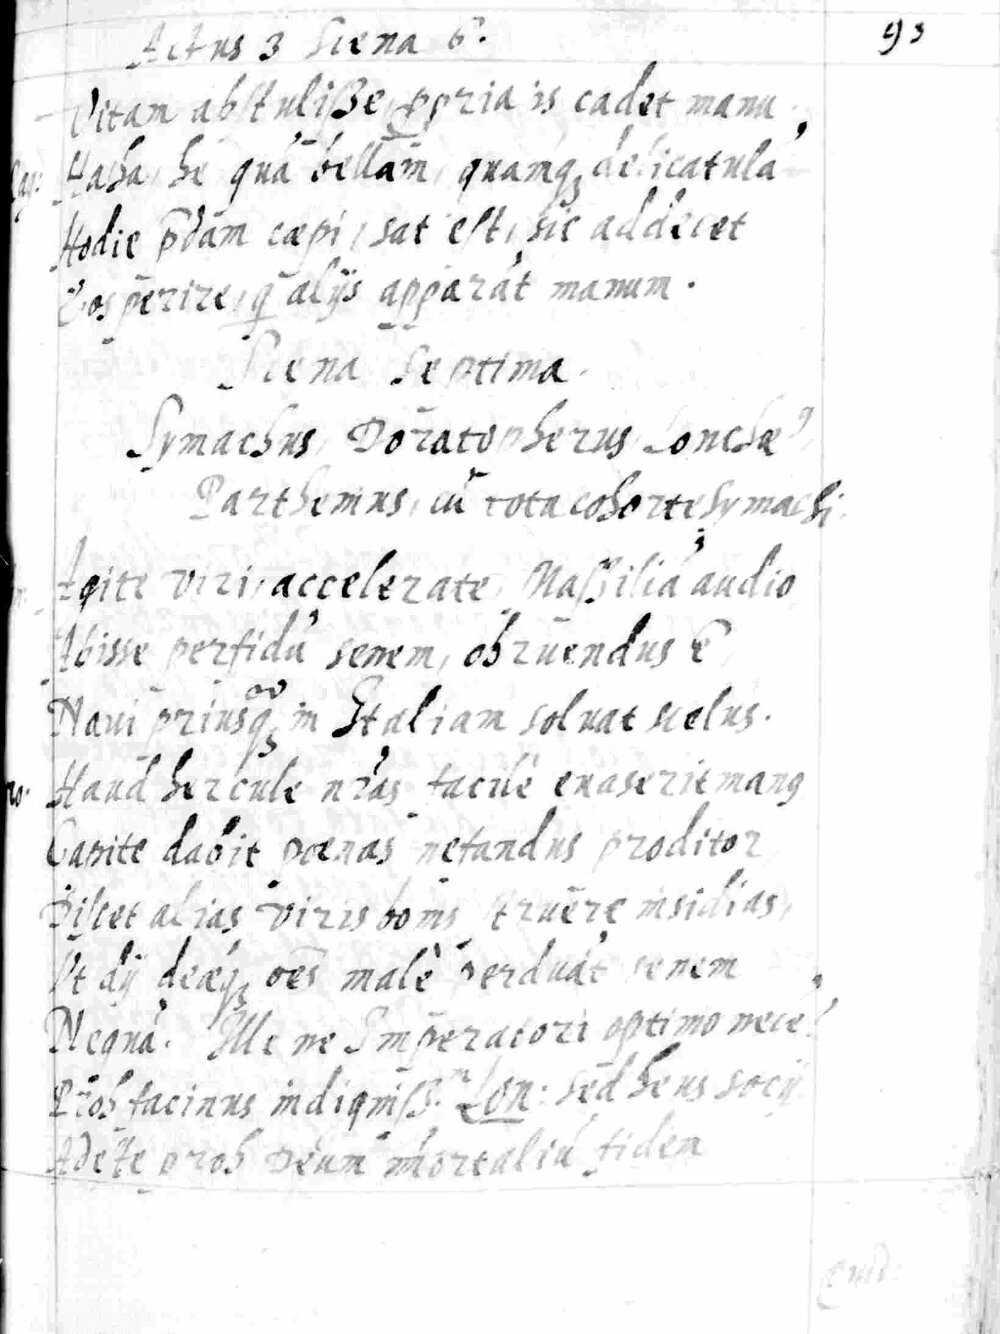 Actus 3 Scena 6. 93
Vitam abstulisse, ꝓpria is cadet manu.
Cay: Hahahe quā bellam, quamq; delicatulā
Hodie p̄dam cæpi, sat est, sic addecet
Eos perire, q̄ alijs apparāt manum.
Scena Septima.
Symachus, Doratopherus, Lonchæ⁹,
Parthenius, cū tota cohorte Symachi.
Agite viri, accelerate, Massiliā audio
Abisse perfidū senem, obruendus ē
Naui priusq; in Italiam soluat scelus.
Haud hercule nr̄as facile euaserit manꝰ
Capite dabit pœnas nefandus proditor
Discet alias viris bonis struere insidias,
Vt dij deæq; oēs malè perduāt senem
Nequā. Ille ne Imperatori optimo necē?
Proh facinus indigniss.ᵐ Lon: sed heus socij
Adeste proh Deum mortaliū fidem